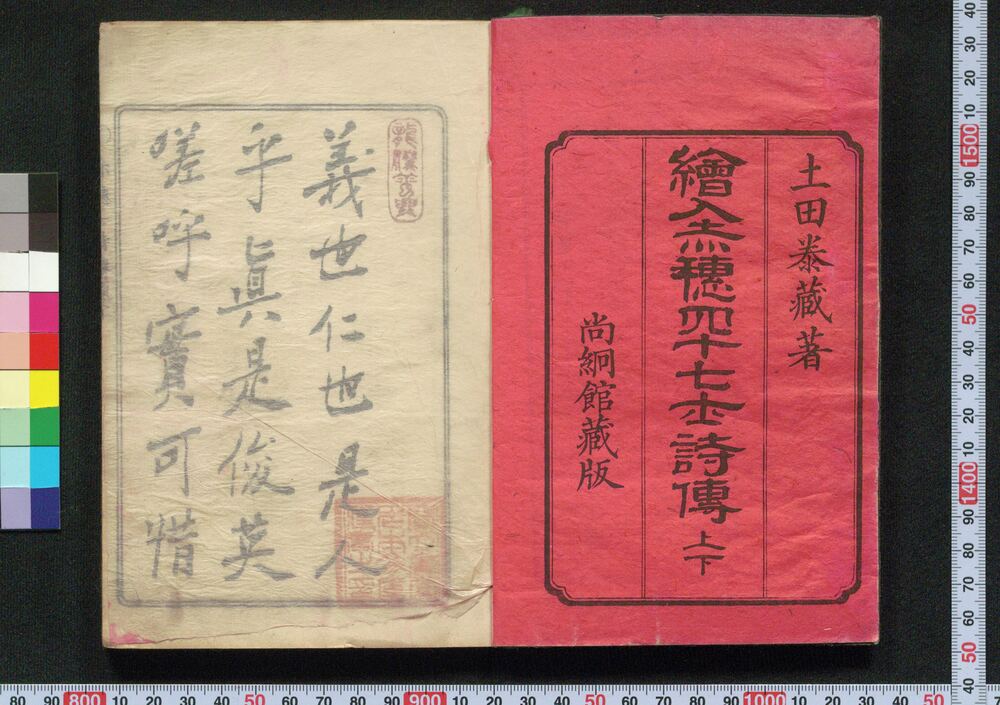 土田泰藏著
繪入赤穗四十七士詩傳 上下
尚絅館藏版
義也仁也是人
乎眞是俊英
嗟呼實可惜
80 90 800 10 20 30 40 50 60 70 80 90 900 10 20 30 40 50 60 70 80 90 1000 10 20 30 40 50
40 30 20 10 1500 90 80 70 60 50 40 30 20 10 1400 90 80 70 60 50 40